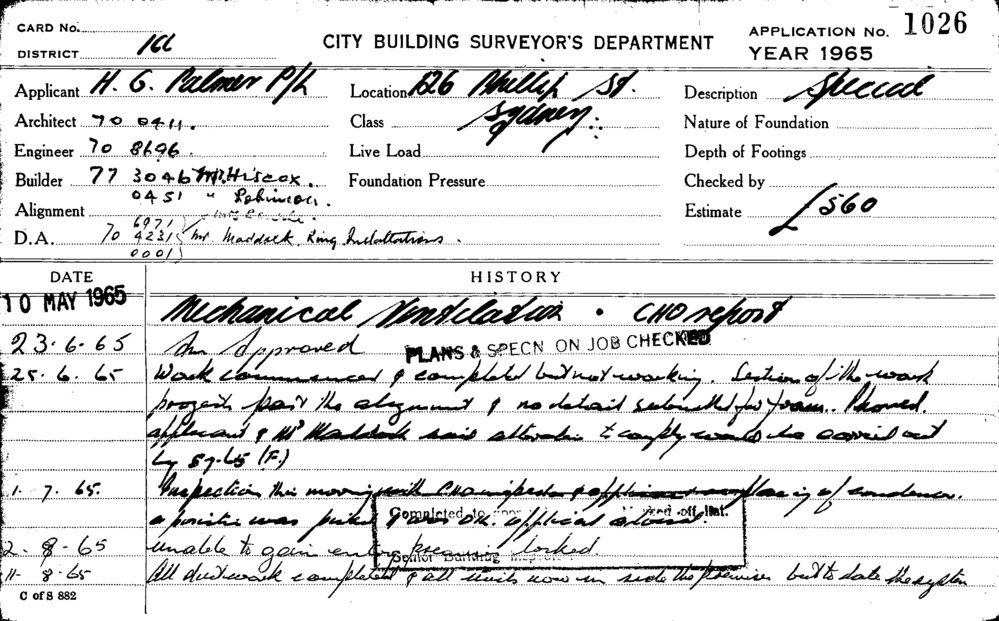 CARD No.
DISTRICT
CITY BUILDING SURVEYOR'S DEPARTMENT
APPLICATION No. 1026
YEAR 1965
Applicant H. G. Palmer P/L
Location 626 Phillip St.
Sydney
Description Special
Architect 70 0411.
Class
Nature of Foundation
Engineer 70 8696
Live Load
Depth of Footings
Builder 77 3046 Mr Hiscox.
Foundation Pressure
Checked by
0451 " Robinson.
Alignment
Estimate £560
6971
D.A. 70 4231 Mr Maddock, King Installations.
0001
DATE
HISTORY
10 MAY 1965
Mechanical Ventilation. CHO report
23.6.65
Approved
PLANS & SPECN ON JOB CHECKED
25.6.65 Work commenced & completed but not working. Section of the work
projects past the alignment & no detail submitted for
applicant & Mr Maddock said alteration to comply would be carried out
by 5.7.65 (F.)
1.7.65. Inspection this morning with CHO & of condenser.
a position was picked
Completed
off list.
2-8-65 unable to gain entry premises locked
Senior Building
11-8-65 All ductwork completed & all units now in side the premises but to date the system
C of S 882